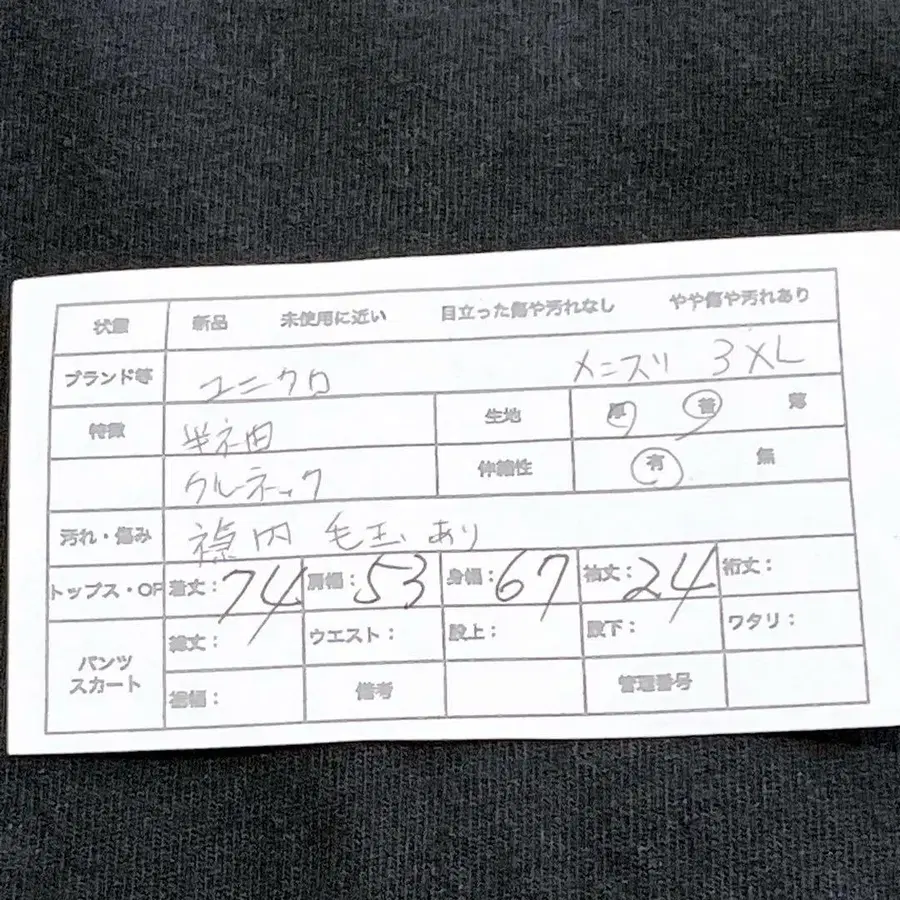 状態 新品 未使用に近い 目立った傷や汚れなし やや傷や汚れあり
ブランド等 ユニクロ メンズ 3XL
特徴 半袖 生地 厚 普 薄
クルーネック 伸縮性 有 無
汚れ・傷み 襟内 毛玉 あり
トップス・OP 着丈：74 肩幅：53 身幅：67 袖丈：24 裄丈：
パンツ スカート 総丈： ウエスト： 股上： 股下： ワタリ：
裾幅： 備考 管理番号